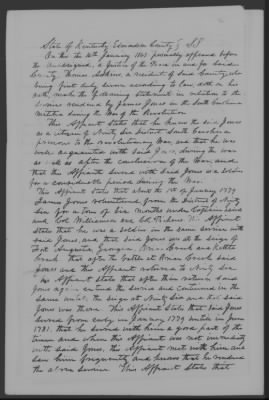 State of Kentucky Edmonson County } SS
On this the 16th January 1843 personally appeared before
the undersigned, a Justice of the Peace in and for said
County, Thomas Adkins, a resident of said County, who
being first duly sworn according to law, doth on his
oath, make the following Statement in relation to the
service rendered by James Jones in the South Carolina
Militia during the War of the Revolution
This Affiant States that he knew the said Jones
as a citizen of Ninety Six District South Carolina
previous to the revolutionary War, and that he was
well acquainted with said Jones, during the war
as well as after the conclusion of the War, and
that this Affiant served with said Jones as a soldier
for a considerable period during the War.
This Affiant States that about the 1st of January 1779
James Jones volunteered from the District of Ninety
Six for a term of six months under Captain
and Col Williamson. This Affiant
States that he was a soldier in the same service with
said Jones, and that said Jones was at the siege of
Fort Augusta, Georgia, Briar Creek and
Creek that after the battle at Briar Creek said
Jones and this Affiant returned to Ninety Six.
This Affiant States that after their return, said
Jones again entered the service and continued in the
same until the siege at Ninety Six and that said
Jones was there This Affiant States that said Jones
served from early in January 1779 until in June
1781. that he served with him a good part of the
time and when this Affiant was not immediately
with said Jones, this Affiant met with him and
saw him frequently and knows that he rendered
the above service. This Affiant States that